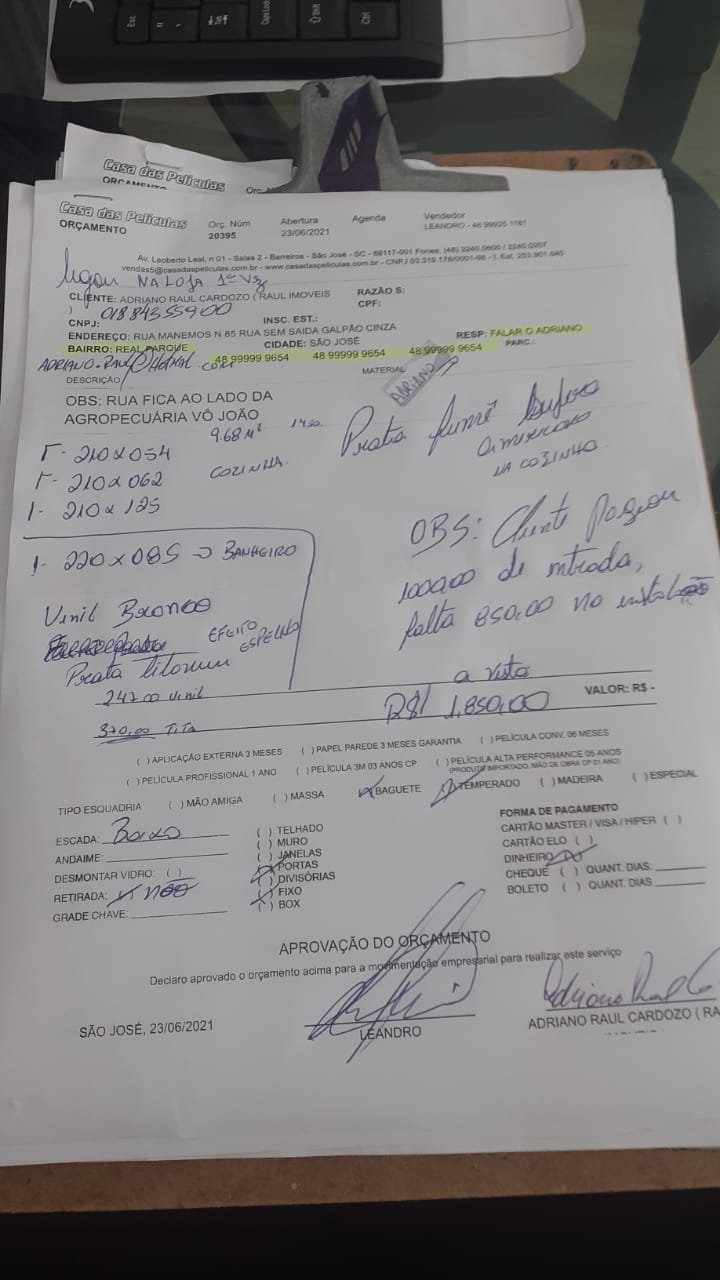 Esc
Ctrl
Casa das Películas
ORÇAMENTO
Casa das Películas
ORÇAMENTO
Orç. Núm
20395
Abertura
23/06/2021
Agenda
Vendedor
LEANDRO - 48 99925 1181
Av. Leoberto Leal, n 01 - Salas 2 - Barreiros - São José - SC - 88117-001 Fones: (48) 3240.0606 / 3240.0207
vendas5@casadaspeliculas.com.br - www.casadaspeliculas.com.br - CNPJ 03.319.178/0001-98 - I. Est. 253.901.640
ligou NA LOJA 1ª Vez
CLIENTE: ADRIANO RAUL CARDOZO ( RAUL IMOVEIS
)
RAZÃO S:
CPF:
01884355900
CNPJ:
INSC. EST.:
ENDEREÇO: RUA MANEMOS N 85 RUA SEM SAIDA GALPÃO CINZA
BAIRRO: REAL PARQUE
CIDADE: SÃO JOSÉ
RESP: FALAR O ADRIANO
48 99999 9654 48 99999 9654 48 99999 9654
PARC.:
ADRIANO-RAUL@HOTMAIL.COM
DESCRIÇÃO
MATERIAL
ADRIANO
OBS: RUA FICA AO LADO DA
AGROPECUÁRIA VÔ JOÃO
1- 210 x 054
9.68 M²
1- 210 x 062
COZINHA.
1- 210 x 125
Prata fumê
NA COZINHA.
1- 220 x 085 → BANHEIRO
OBS: Cliente Pagou
1000,00 de entrada,
falta 850,00 no
Vinil Branco
EFEITO
ESPELHO
Prata titanium
247,00 Vinil
370,00 TITA
a vista
R$ 1.850,00
VALOR: R$ -
( ) APLICAÇÃO EXTERNA 3 MESES ( ) PAPEL PAREDE 3 MESES GARANTIA ( ) PELÍCULA CONV. 06 MESES
( ) PELÍCULA PROFISSIONAL 1 ANO ( ) PELÍCULA 3M 03 ANOS CP ( ) PELÍCULA ALTA PERFORMANCE 05 ANOS
(PRODUTO IMPORTADO, MÃO DE OBRA CP 01 ANO)
TIPO ESQUADRIA ( ) MÃO AMIGA ( ) MASSA (X) BAGUETE (X) TEMPERADO ( ) MADEIRA ( ) ESPECIAL
ESCADA: Baixo
ANDAIME:
DESMONTAR VIDRO: ( )
RETIRADA: não
GRADE CHAVE:
( ) TELHADO
( ) MURO
( ) JANELAS
(X) PORTAS
( ) DIVISÓRIAS
(X) FIXO
( ) BOX
FORMA DE PAGAMENTO
CARTÃO MASTER / VISA / HIPER ( )
CARTÃO ELO ( )
DINHEIRO (X)
CHEQUE ( ) QUANT. DIAS:
BOLETO ( ) QUANT. DIAS
APROVAÇÃO DO ORÇAMENTO
Declaro aprovado o orçamento acima para a movimentação empresarial para realizar este serviço
SÃO JOSÉ, 23/06/2021
LEANDRO
Adriano Raul C
ADRIANO RAUL CARDOZO ( RA